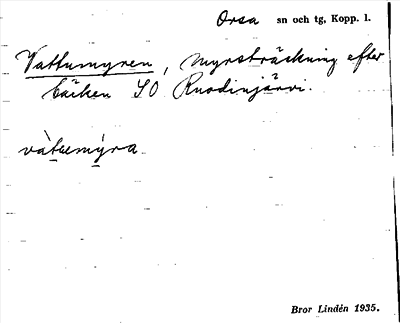 Orsa sn och tg, Kopp. l.
Vattumyren, myrsträckning efter
bäcken SO Ruodinjärvi.
vàtu̱emý̱ra
Bror Lindén 1935.